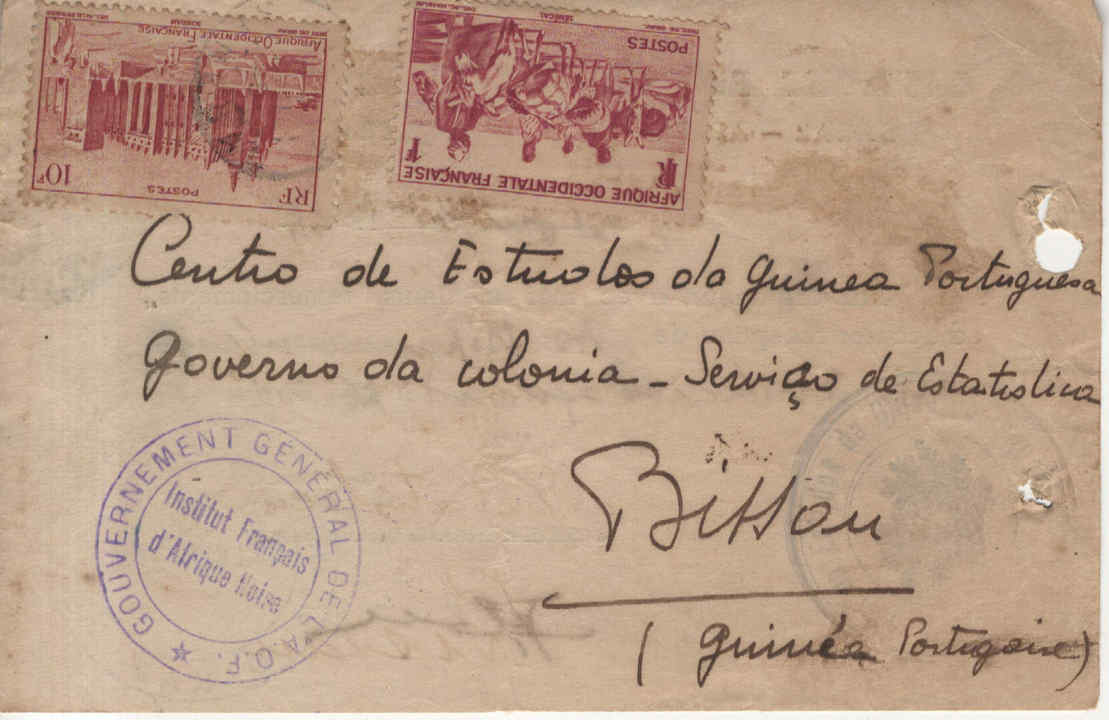 RF
POSTES
10F
AFRIQUE OCCIDENTALE FRANÇAISE
SOUDAN
AFRIQUE OCCIDENTALE FRANÇAISE
RF
1F
POSTES
SÉNÉGAL
Centro de Estudos da Guinea Portuguesa
Governo da colonia - Serviço de Estatistica
Bissau
(Guinéa Portugaise)
GOUVERNEMENT GÉNÉRAL DE L'A.O.F.
Institut Français
d'Afrique Noire